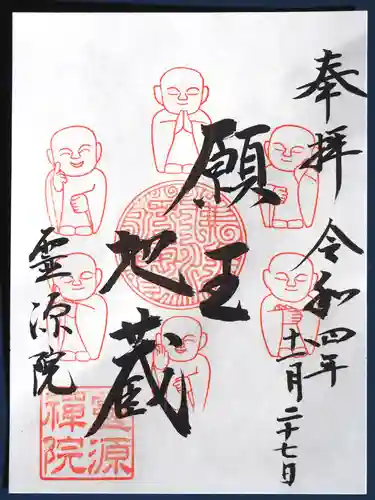 奉拝 令和四年十一月二十七日
願王
地蔵
霊源院
靈源
禅院